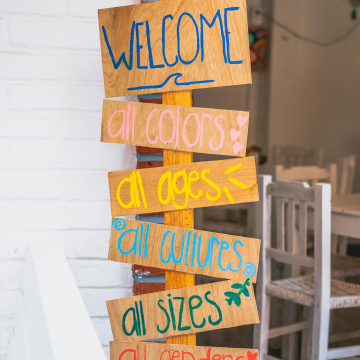 WELCOME
all colors
all ages
all cultures
all sizes
all genders